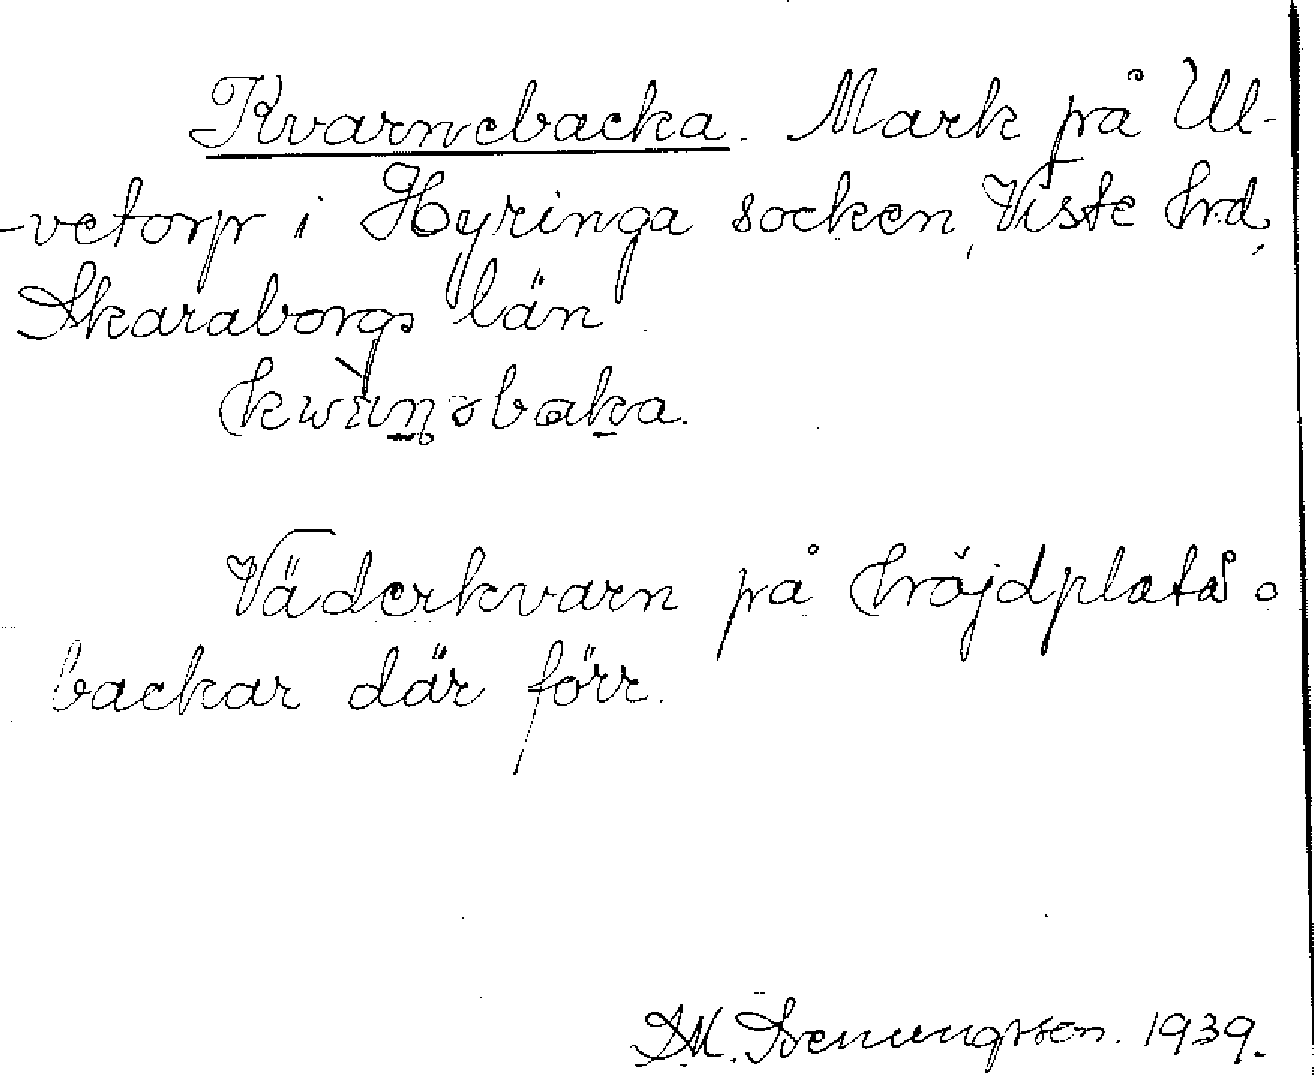 Kvarnebacka. Mark på Ul-
-vetorp i Hyringa socken, Viste hrd,
Skaraborgs län.
kwàn̥əbaka.
Väderkvarn på höjdplatå o
backar där förr.
D.M. Svenungsson. 1939.